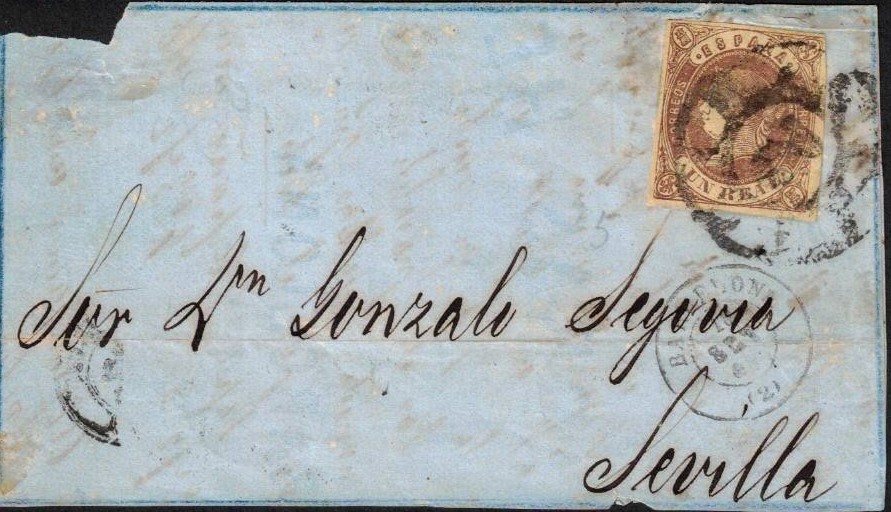 · ESPAÑA ·
CORREOS
UN REAL
5
Sor Dn Gonzalo Segovia
BARCELONA
(2)
Sevilla